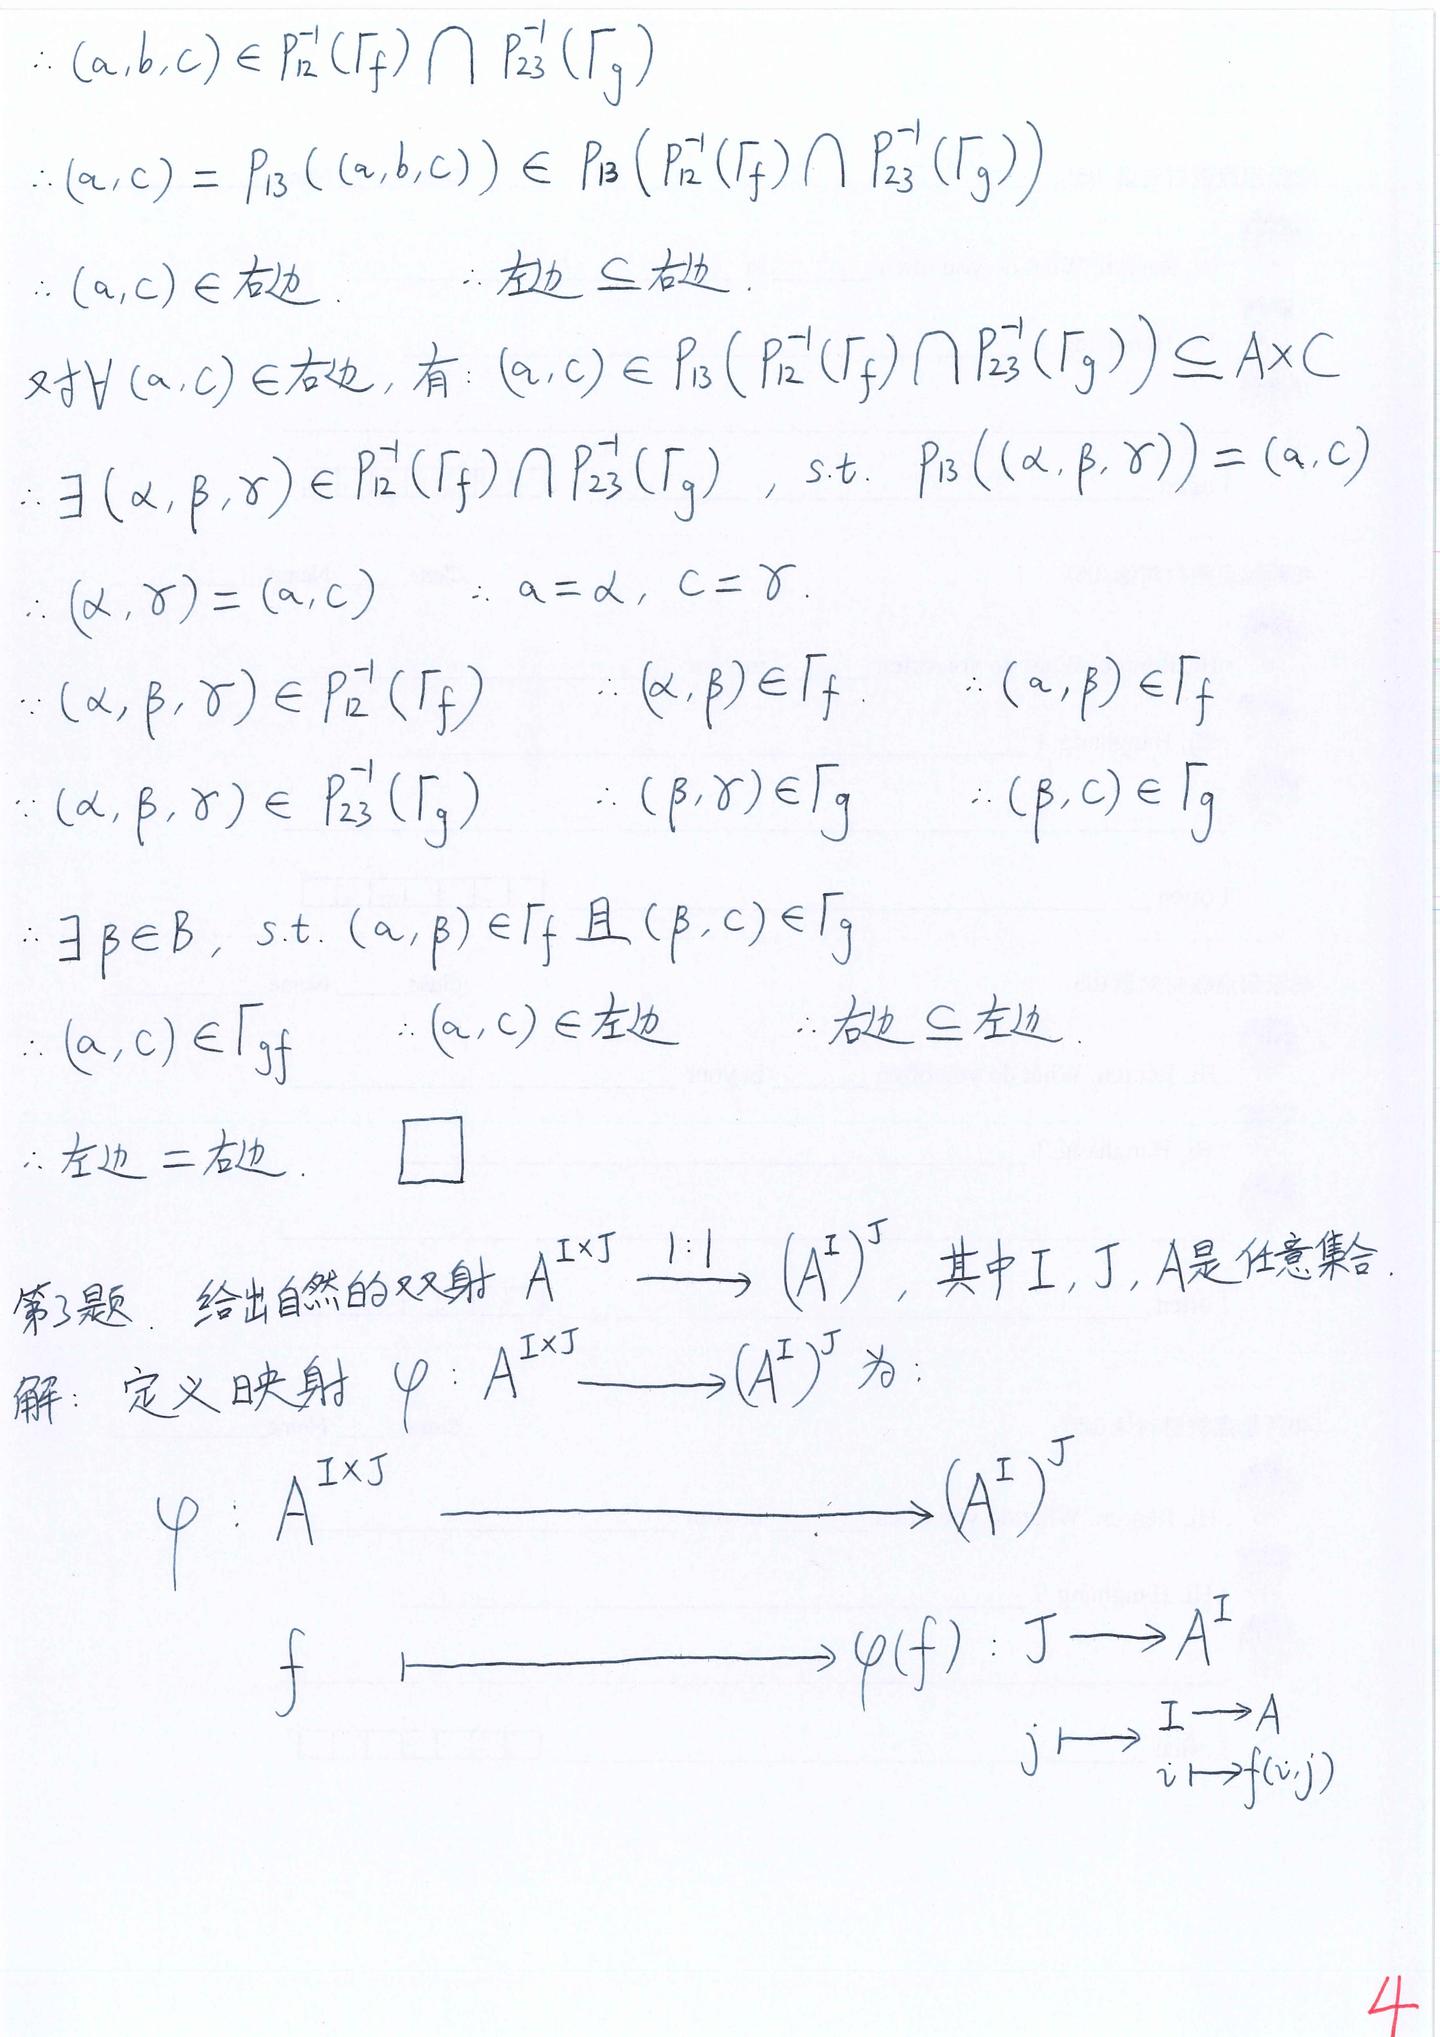 ∴ (a,b,c) ∈ P₁₂⁻¹(Γ_f) ⋂ P₂₃⁻¹(Γ_g)
∴ (a,c) = P₁₃((a,b,c)) ∈ P₁₃(P₁₂⁻¹(Γ_f) ⋂ P₂₃⁻¹(Γ_g))
∴ (a,c) ∈ 右边. ∴ 左边 ⊆ 右边.
对∀(a,c) ∈ 右边, 有: (a,c) ∈ P₁₃(P₁₂⁻¹(Γ_f) ⋂ P₂₃⁻¹(Γ_g)) ⊆ A×C
∴ ∃(α,β,γ) ∈ P₁₂⁻¹(Γ_f) ⋂ P₂₃⁻¹(Γ_g), s.t. P₁₃((α,β,γ)) = (a,c)
∴ (α,γ) = (a,c) ∴ a=α, c=γ.
∵ (α,β,γ) ∈ P₁₂⁻¹(Γ_f) ∴ (α,β) ∈ Γ_f. ∴ (a,β) ∈ Γ_f
∵ (α,β,γ) ∈ P₂₃⁻¹(Γ_g) ∴ (β,γ) ∈ Γ_g ∴ (β,c) ∈ Γ_g
∴ ∃β∈B, s.t. (a,β) ∈ Γ_f 且 (β,c) ∈ Γ_g
∴ (a,c) ∈ Γ_gf ∴ (a,c) ∈ 左边 ∴ 右边 ⊆ 左边.
∴ 左边 = 右边. □
第3题. 给出自然的双射 A^{I×J} \xrightarrow{1:1} (A^I)^J, 其中 I, J, A是任意集合.
解: 定义映射 φ: A^{I×J} ⟶ (A^I)^J 为:
φ: A^{I×J} ⟶ (A^I)^J
f ⟼ φ(f): J ⟶ A^I
j ⟼ I ⟶ A
i ⟼ f(i,j)
4